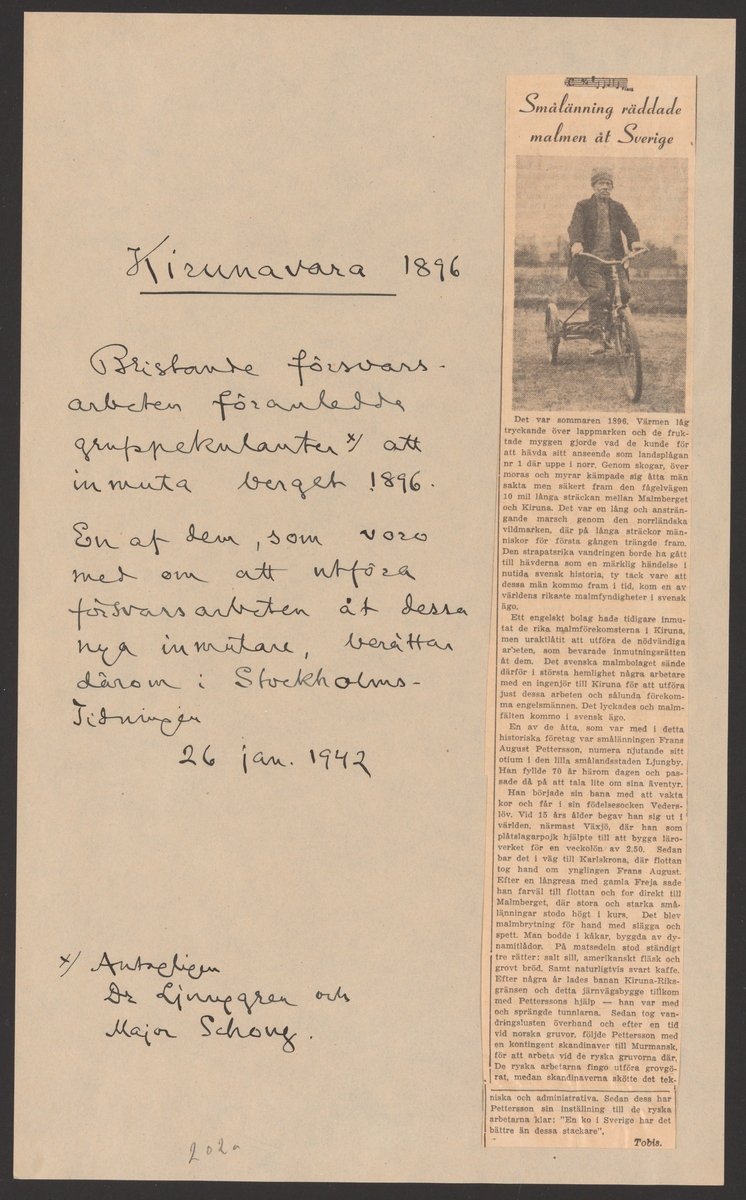 Kirunavara 1896
Bristande försvars-
arbeten föranledde
grufspekulanter x/ att
inmuta berget 1896.
En af dem, som voro
med om att utföra
försvarsarbeten åt dessa
nya inmutare, berättar
därom i Stockholms-
Tidningen
26 jan. 1942
x/ Antagligen
Dr Ljunggren och
Major Schoug.
202a
Smålänning räddade
malmen åt Sverige
Det var sommaren 1896. Värmen låg
tryckande över lappmarken och de fruk-
tade myggen gjorde vad de kunde för
att hävda sitt anseende som landsplågan
nr 1 där uppe i norr. Genom skogar, över
moras och myrar kämpade sig åtta män
sakta men säkert fram den fågelvägen
10 mil långa sträckan mellan Malmberget
och Kiruna. Det var en lång och ansträn-
gande marsch genom den norrländska
vildmarken, där på långa sträckor män-
niskor för första gången trängde fram.
Den strapatsrika vandringen borde ha gått
till hävderna som en märklig händelse i
nutida svensk historia, ty tack vare att
dessa män kommo fram i tid, kom en av
världens rikaste malmfyndigheter i svensk
ägo.
Ett engelskt bolag hade tidigare inmu-
tat de rika malmförekomsterna i Kiruna,
men uraktlåtit att utföra de nödvändiga
arbeten, som bevarade inmutningsrätten
åt dem. Det svenska malmbolaget sände
därför i största hemlighet några arbetare
med en ingenjör till Kiruna för att utföra
just dessa arbeten och sålunda förekom-
ma engelsmännen. Det lyckades och malm-
fälten kommo i svensk ägo.
En av de åtta, som var med i detta
historiska företag var smålänningen Frans
August Pettersson, numera njutande sitt
otium i den lilla smålandsstaden Ljungby.
Han fyllde 70 år härom dagen och pas-
sade då på att tala lite om sina äventyr.
Han började sin bana med att vakta
kor och får i sin födelsesocken Veders-
löv. Vid 15 års ålder begav han sig ut i
världen, närmast Växjö, där han som
plåtslagarpojk hjälpte till att bygga läro-
verket för en veckolön av 2.50. Sedan
bar det i väg till Karlskrona, där flottan
tog hand om ynglingen Frans August.
Efter en långresa med gamla Freja sade
han farväl till flottan och for direkt till
Malmberget, där stora och starka små-
länningar stodo högt i kurs. Det blev
malmbrytning för hand med slägga och
spett. Man bodde i kåkar, byggda av dy-
namitlådor. På matsedeln stod ständigt
tre rätter: salt sill, amerikanskt fläsk och
grovt bröd. Samt naturligtvis svart kaffe.
Efter några år lades banan Kiruna-Riks-
gränsen och detta järnvägsbygge tillkom
med Petterssons hjälp — han var med
och sprängde tunnlarna. Sedan tog van-
dringslusten överhand och efter en tid
vid norska gruvor, följde Pettersson med
en kontingent skandinaver till Murmansk,
för att arbeta vid de ryska gruvorna där.
De ryska arbetarna fingo utföra grovgö-
rat, medan skandinaverna skötte det tek-
niska och administrativa. Sedan dess har
Pettersson sin inställning till de ryska
arbetarna klar: "En ko i Sverige har det
bättre än dessa stackare".
Tobis.